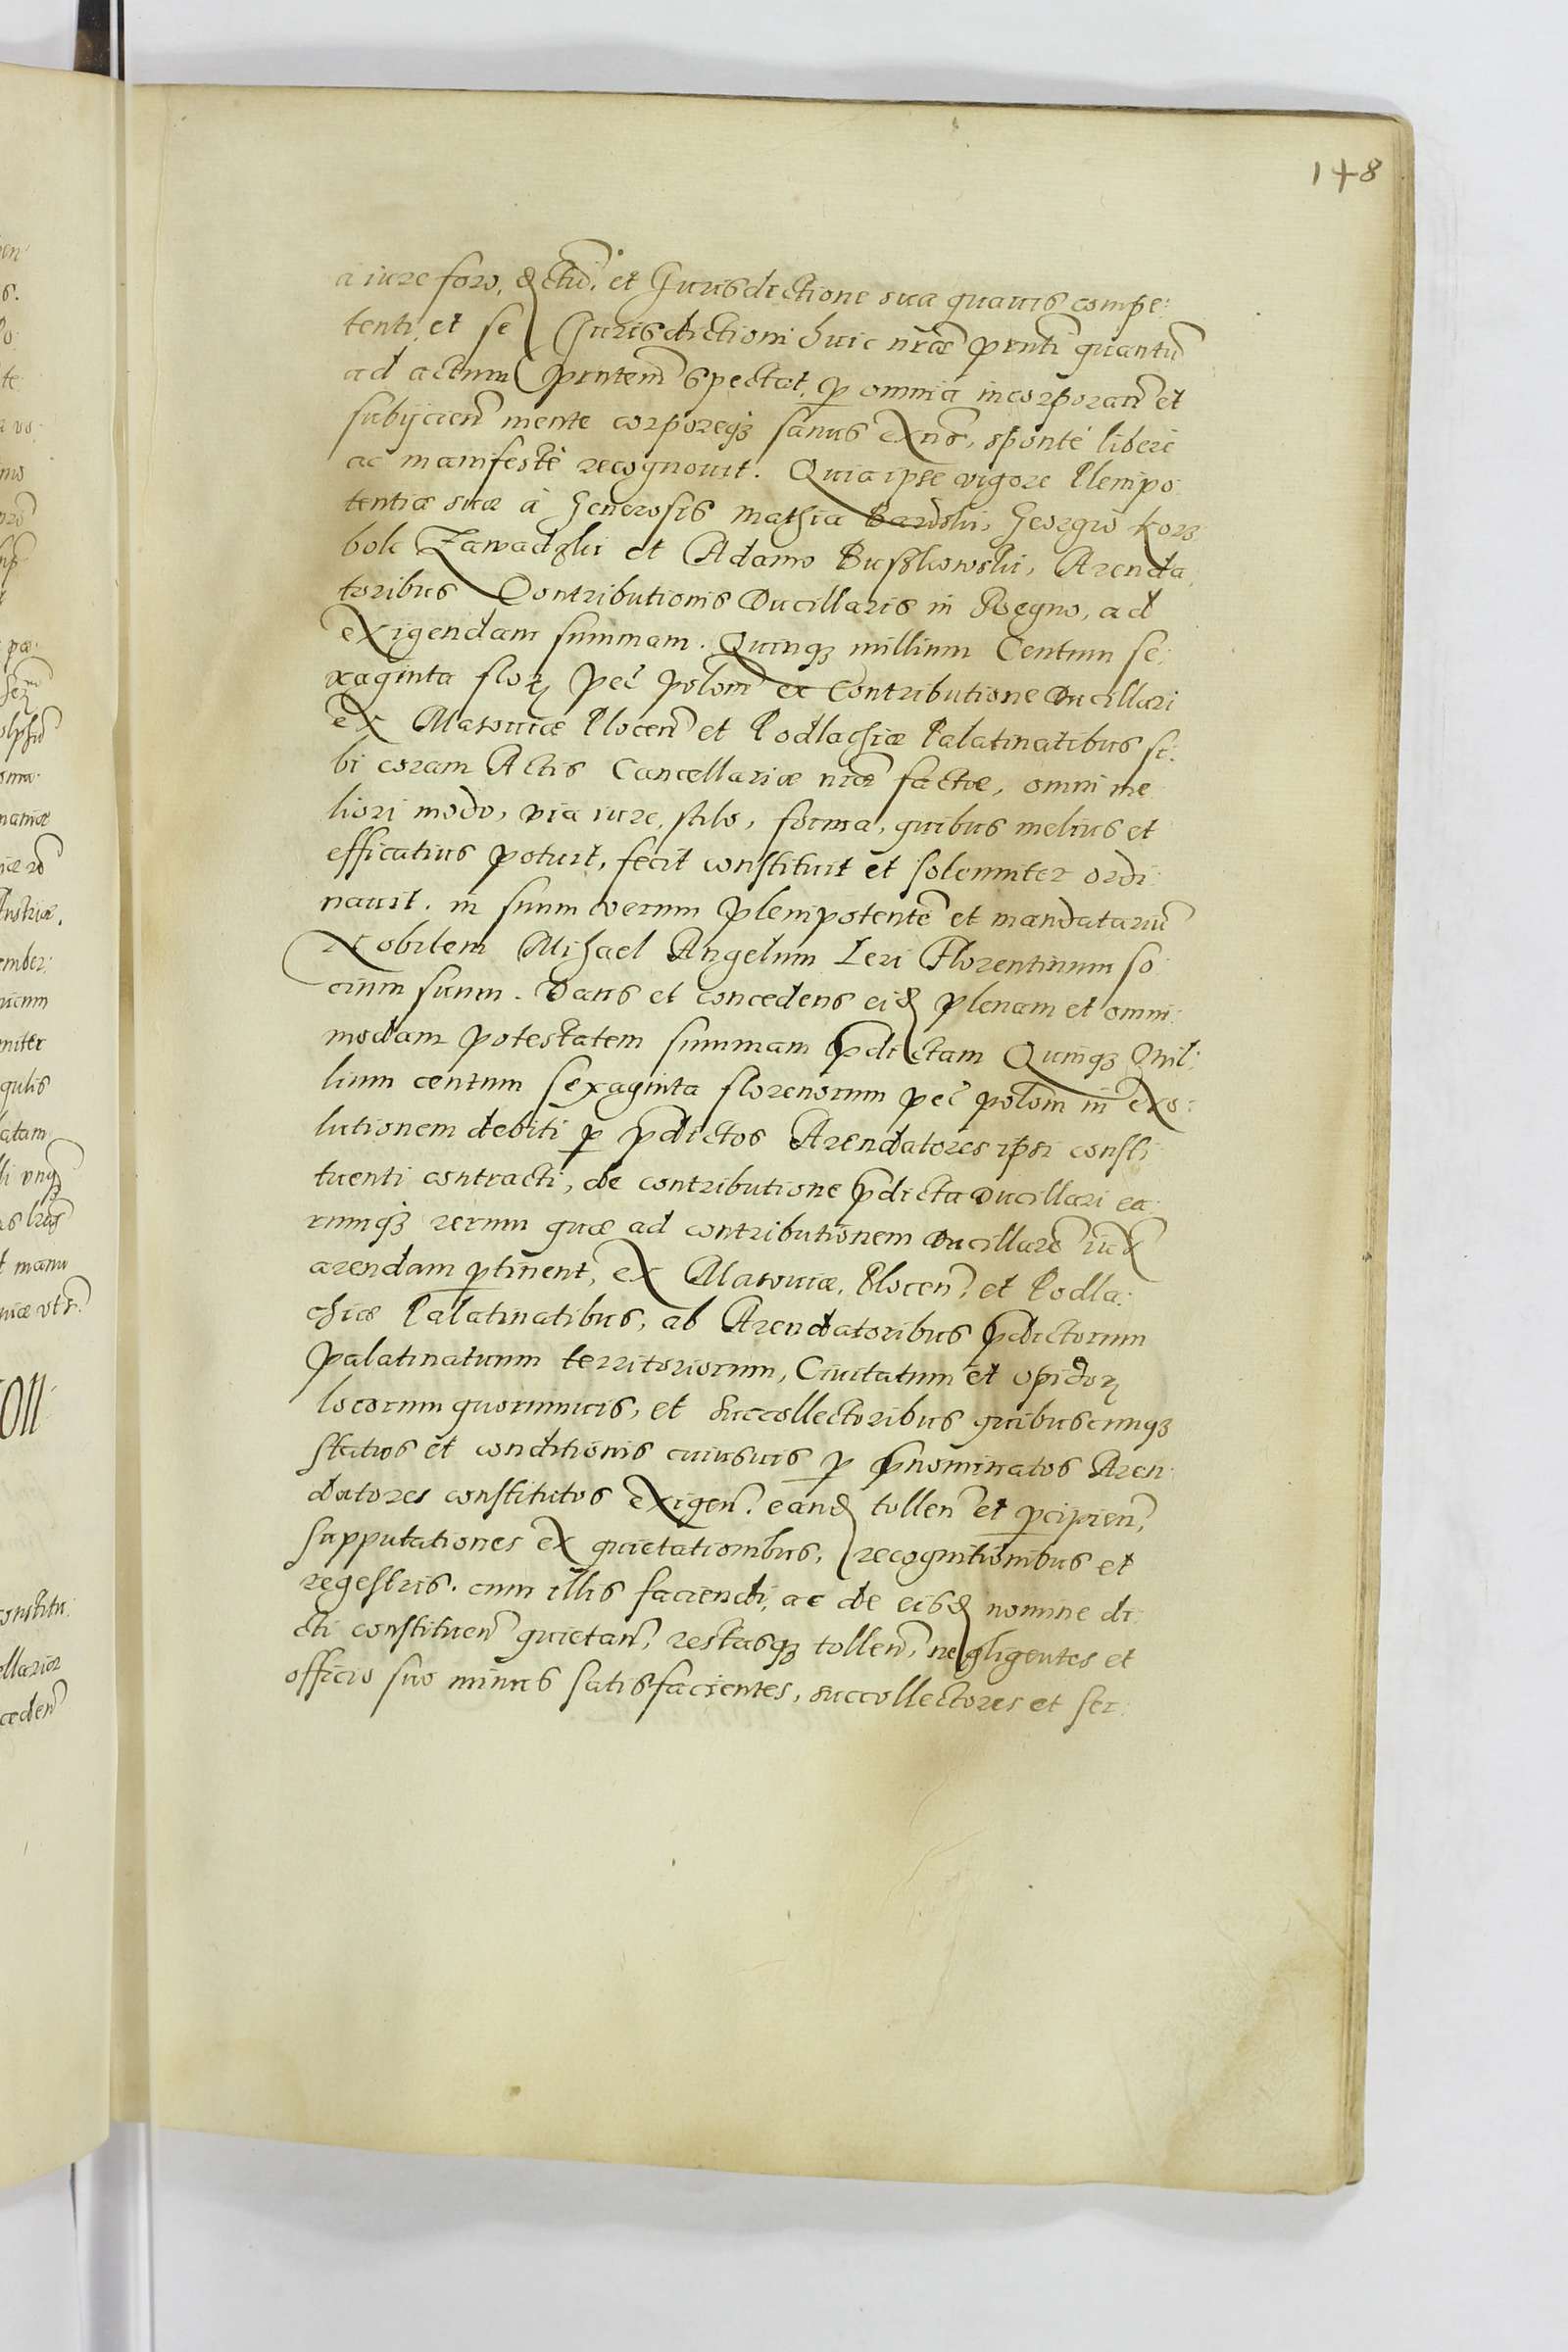 148
a iure foro, et Jurisdictione sua quauis compe:
tenti, et se Jurisdictioni huic nrae prnti quantũ
ad actum prntem̃ spectat, p omnia incorporan̄ et
subijcien̄ mente corporeqȝ sanus exñs, sponte libere
ac manifeste recognouit. Quia ipse vigore Plenipo
tentiæ suæ à Generosis Mathia Bardski, Georgio Korz
bok Zawadzki et Adamo Buszkowski, Arenda
toribus Contributionis Ducillaris in Regno, ad
exigendam summam. Quinqȝ millium Centum se:
xaginta floꝝ pec̃ polom̃ ex Contributione Ducillari
ex Masouiæ Plocen̄ et Podlachiæ Palatinatibus si:
bi coram Actis Cancellariæ nrae factæ, omni me
liori modo, via iure, stilo, forma, quibus melius et
efficatius potuit, fecit constituit et solemniter ordi
nauit. in suum verum plenipotentẽ et mandatariũ
Nobilem Michael Angelum Leri Florentinum so
cium suum. Dans et concedens eid plenam et omni:
modam potestatem summam pdictam Quinqȝ Mil:
lium centum sexaginta florenorum pec̃ polom̃ in exo:
lutionem debiti p pdictos Arendatores ipsi consti
tuenti contracti, de contributione pdicta Ducillari ea
rumqȝ rerum quæ ad contributionem Ducillarẽ
arendam ptinent, ex Masouiæ, Plocen̄, et Podla:
chiæ Palatinatibus, ab Arendatoribus pdictorum
palatinatuum territoriorum, Ciuitatum et opidoꝝ
locorum quorumuis, et succollectoribus quibuscunqȝ
status et conditionis cuiusuis p pnominatos Aren
datores constitutos exigen̄. eand tollen̄ et pcipien̄,
supputationes ex quietationibus, recognitionibus et
regestris. cum illis faciendi, ac de eisd nomine di
cti constituen̄ quietan̄, restasqȝ tollen̄, negligentes et
officio suo minus satisfacientes, succollectores et ser: